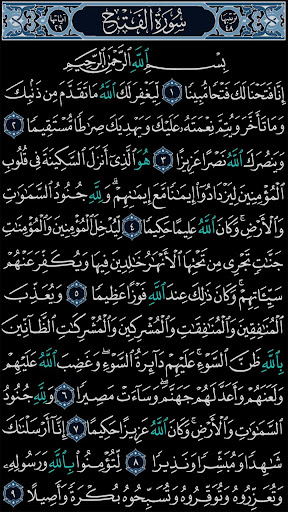 سُورَةُ الفَتْحِ
بِسْمِ اللَّهِ الرَّحْمَٰنِ الرَّحِيمِ
إِنَّا فَتَحْنَا لَكَ فَتْحًا مُّبِينًا ١ لِّيَغْفِرَ لَكَ اللَّهُ مَا تَقَدَّمَ مِن ذَنۢبِكَ
وَمَا تَأَخَّرَ وَيُتِمَّ نِعْمَتَهُۥ عَلَيْكَ وَيَهْدِيَكَ صِرَٰطًا مُّسْتَقِيمًا ٢
وَيَنصُرَكَ اللَّهُ نَصْرًا عَزِيزًا ٣ هُوَ الَّذِىٓ أَنزَلَ السَّكِينَةَ فِى قُلُوبِ
الْمُؤْمِنِينَ لِيَزْدَادُوٓا۟ إِيمَٰنًا مَّعَ إِيمَٰنِهِمْ ۗ وَلِلَّهِ جُنُودُ السَّمَٰوَٰتِ
وَالْأَرْضِ ۚ وَكَانَ اللَّهُ عَلِيمًا حَكِيمًا ٤ لِّيُدْخِلَ الْمُؤْمِنِينَ وَالْمُؤْمِنَٰتِ
جَنَّٰتٍ تَجْرِى مِن تَحْتِهَا الْأَنْهَٰرُ خَٰلِدِينَ فِيهَا وَيُكَفِّرَ عَنْهُمْ
سَيِّـَٔاتِهِمْ ۚ وَكَانَ ذَٰلِكَ عِندَ اللَّهِ فَوْزًا عَظِيمًا ٥ وَيُعَذِّبَ
الْمُنَٰفِقِينَ وَالْمُنَٰفِقَٰتِ وَالْمُشْرِكِينَ وَالْمُشْرِكَٰتِ الظَّآنِّينَ
بِاللَّهِ ظَنَّ السَّوْءِ ۚ عَلَيْهِمْ دَآئِرَةُ السَّوْءِ ۖ وَغَضِبَ اللَّهُ عَلَيْهِمْ
وَلَعَنَهُمْ وَأَعَدَّ لَهُمْ جَهَنَّمَ ۖ وَسَآءَتْ مَصِيرًا ٦ وَلِلَّهِ جُنُودُ
السَّمَٰوَٰتِ وَالْأَرْضِ ۚ وَكَانَ اللَّهُ عَزِيزًا حَكِيمًا ٧ إِنَّآ أَرْسَلْنَٰكَ
شَٰهِدًا وَمُبَشِّرًا وَنَذِيرًا ٨ لِّتُؤْمِنُوا۟ بِاللَّهِ وَرَسُولِهِۦ
وَتُعَزِّرُوهُ وَتُوَقِّرُوهُ وَتُسَبِّحُوهُ بُكْرَةً وَأَصِيلًا ٩